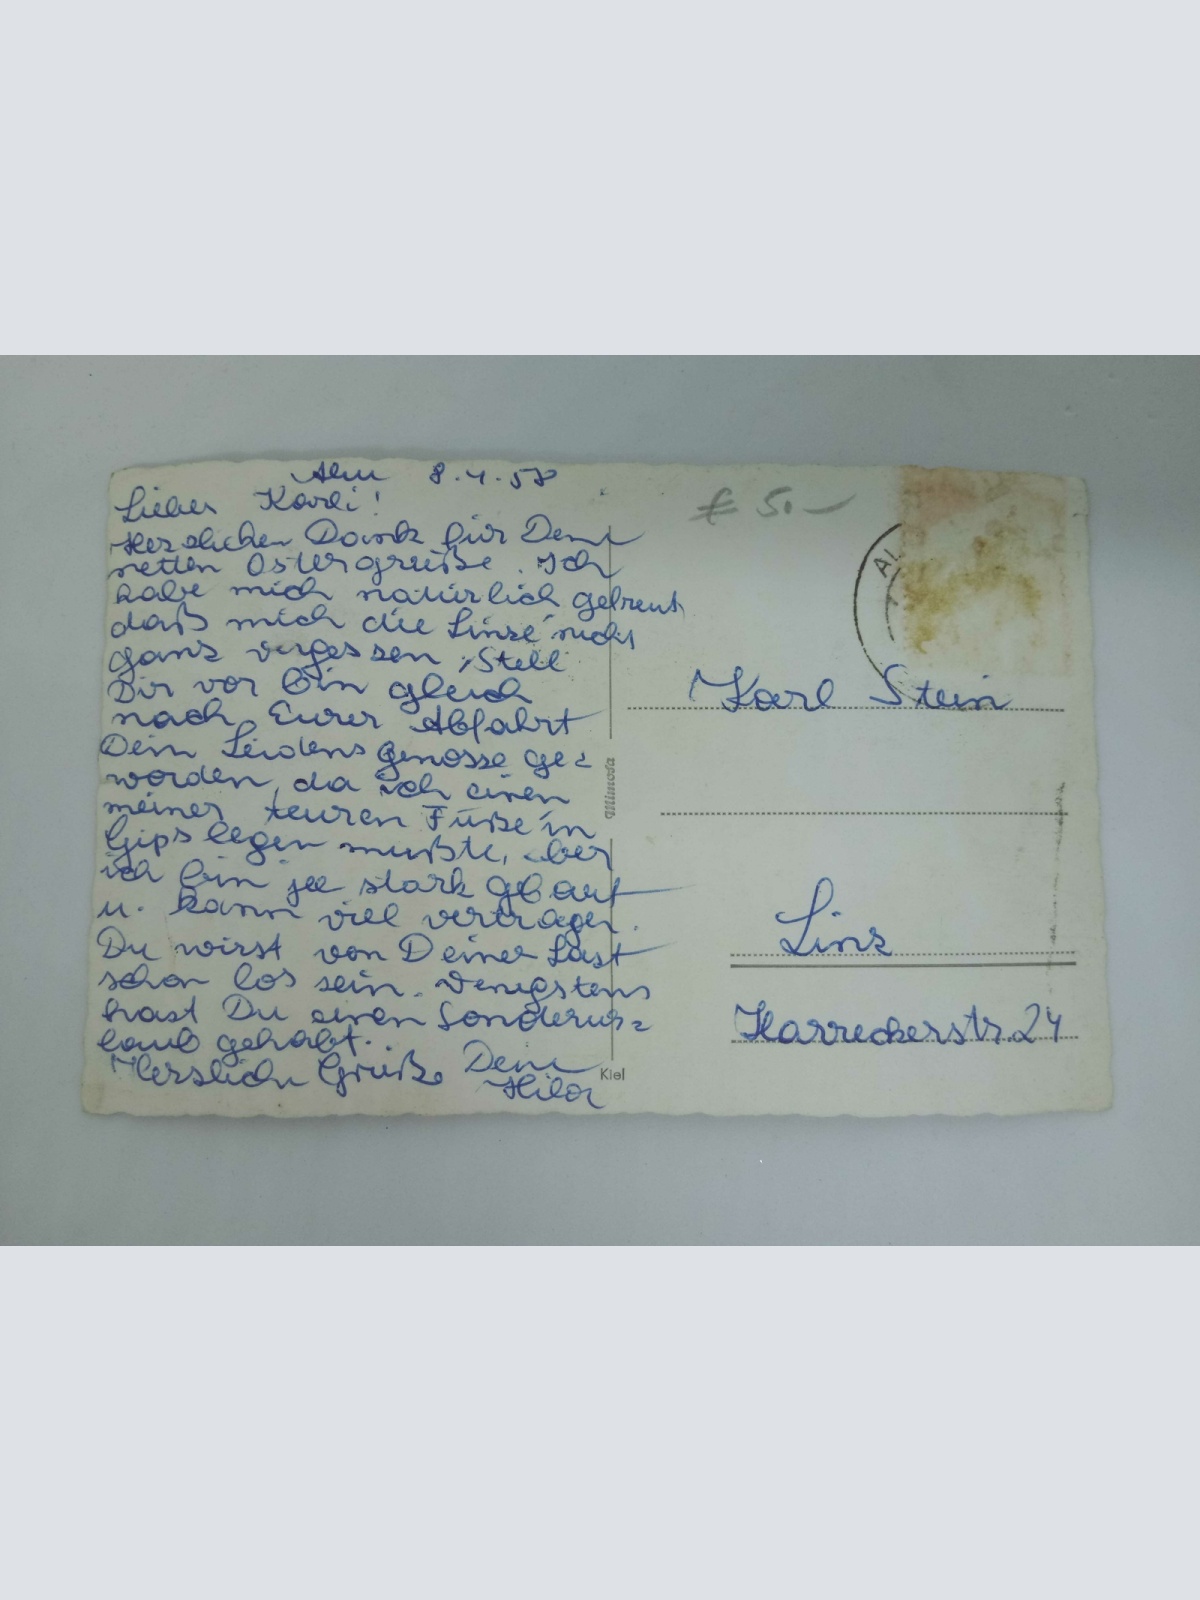 Alm 8.4.58
Lieber Karli!
Herzlichen Dank für Deine
netten Ostergrüße. Ich
habe mich natürlich gefreut,
daß mich die Linze nicht
ganz vergessen, Stell
Dir vor bin gleich
nach Eurer Abfahrt
Dein Leidensgenosse ge=
worden, da ich einen
meiner teuren Füße in
Gips legen mußte, aber
ich bin ja stark gebaut
u. kann viel vertragen.
Du wirst von Deiner Last
schon los sein. Wenigstens
hast Du einen Sonderur=
laub gehabt.
Herzliche Grüße Deine
€ 50.-
AL
Mimosa
Kiel
Karl Stein
Linz
Harreckerstr. 24